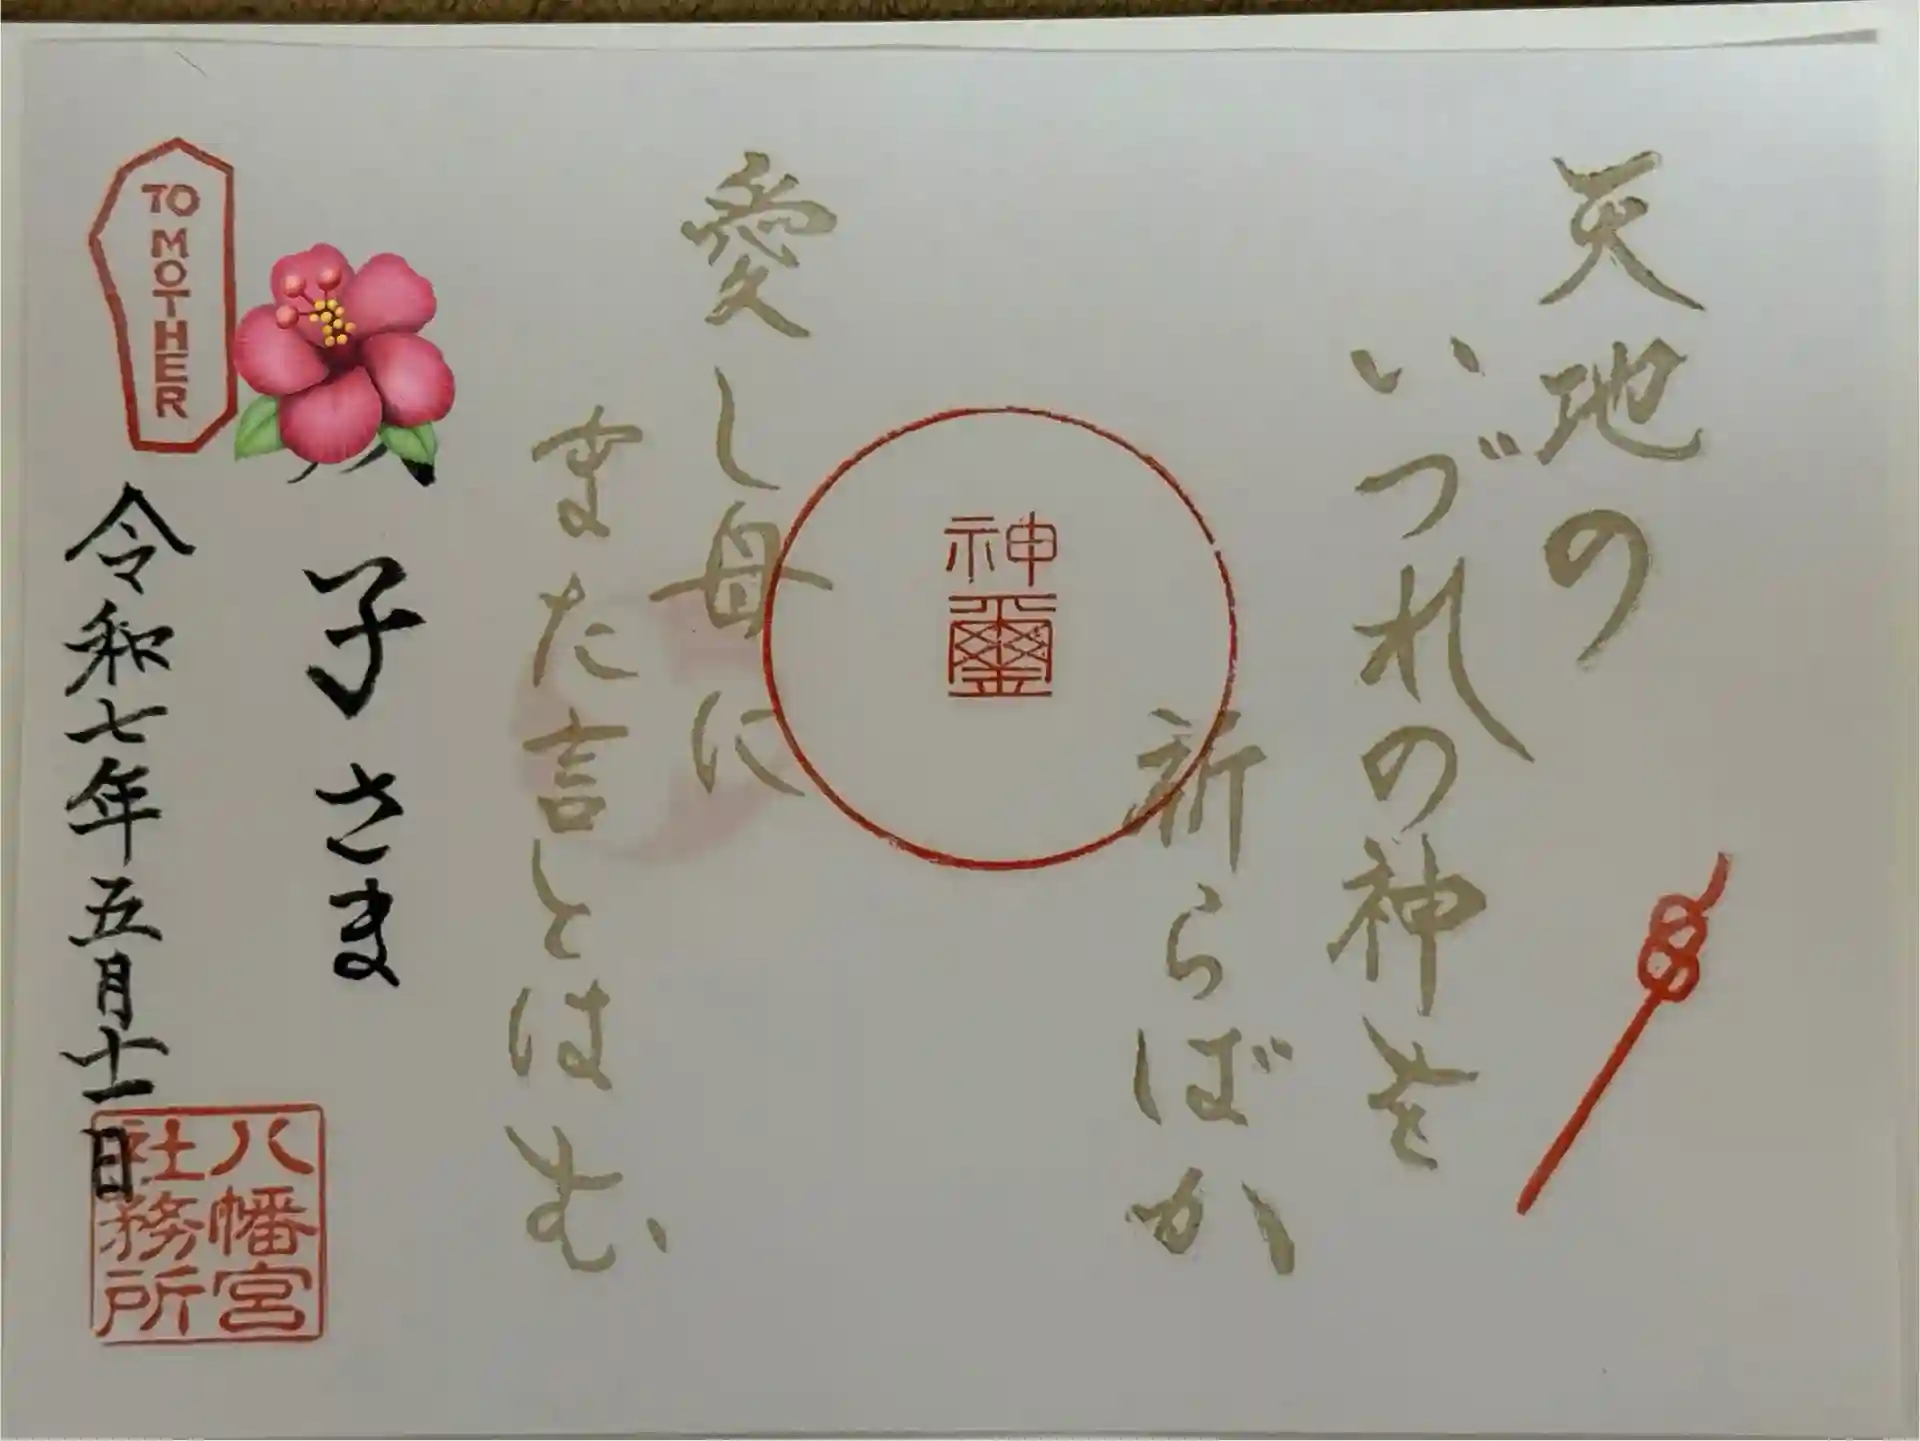 天地の
いづれの神を
祈らばか
神璽
愛し母に
また言とはむ
子さま
TO MOTHER
令和七年五月十一日
八幡宮
社務所